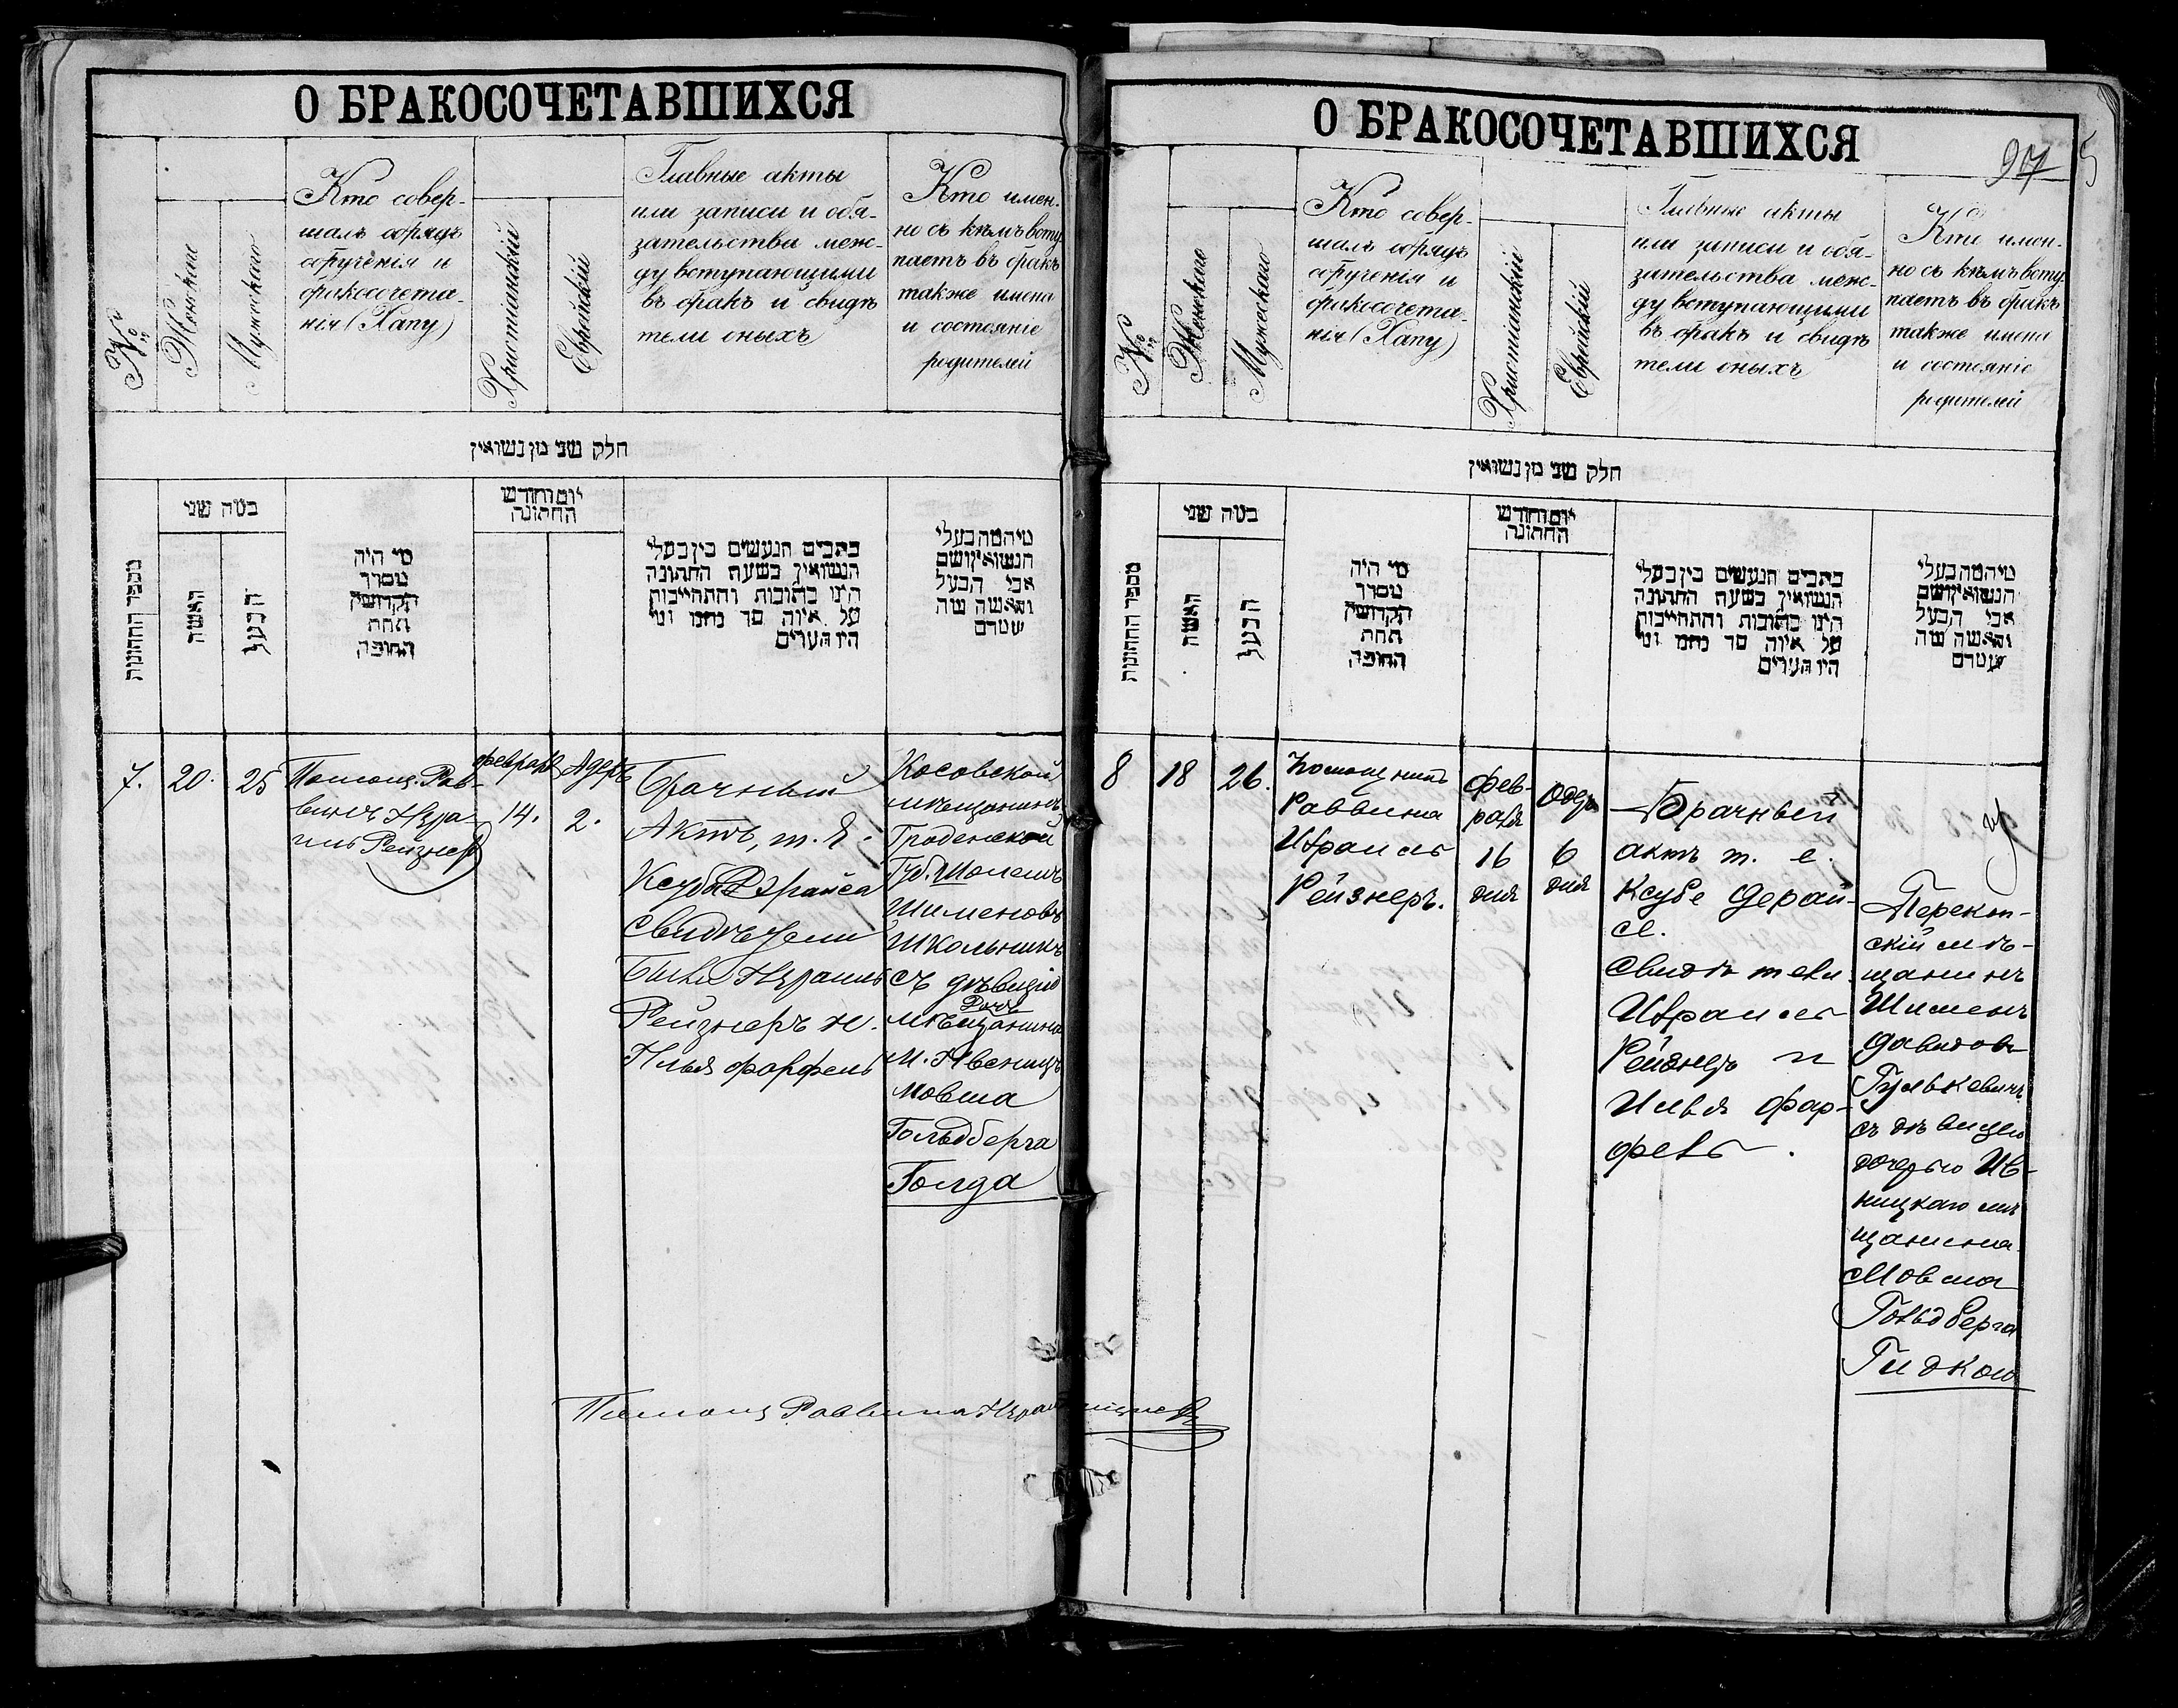 О БРАКОСОЧЕТАВШИХСЯ
№
Женскаго
Мужескаго
Кто совер-
шалъ обрядъ
обрученія и
бракосочета-
нія (Хапу)
Христіанскій
Еврейскій
Главные акты
или записи и обя-
зательства меж-
ду вступающими
въ бракъ и свидѣ
тели оныхъ
Кто имен-
но съ кѣмъ всту
паетъ въ бракъ
также имена
и состояніе
родителей
חלק שני מן נשואין
מספר החתונות
כמה שני
האשה
הבעל
מי היה
מסדר
הקדושין
תחת
החופה
יום וחודש
החתונה
כתבים הנעשים בין בעלי
הנשואין בשעת החתונה
היינו כתובות והתחייבות
על איזה סך נתנו ומי
היו העדים
מי המה בעלי
הנשואין ושם
אבי הבעל
והאשה מה
שטרם
7.
20.
25
Помощ. Рав-
вина Изра-
иль Рейзнер
февраля
14.
Адеръ
2.
Брачный
Актъ, т. е.
Ксуба Драйса
Свидѣтели
Были Израиль
Рейзнеръ и.
Илья Фарфель
Косовской
мѣщанинъ
Гроденской
Губ. Шолемъ
Шименовъ
Школьникъ
съ дѣвицію
Дочь
мѣщанина
м. Ивеницъ
Мовша
Гольдберга
Голда
Помощ Раввина Израиль Рейзнеръ
О БРАКОСОЧЕТАВШИХСЯ
97
5
№
Женскаго
Мужескаго
Кто совер-
шалъ обрядъ
обрученія и
бракосочета-
нія (Хапу)
Христіанскій
Еврейскій
Главные акты
или записи и обя-
зательства меж-
ду вступающими
въ бракъ и свидѣ
тели оныхъ
Кто имен-
но съ кѣмъ всту
паетъ въ бракъ
также имена
и состояніе
родителей
חלק שני מן נשואין
מספר החתונות
כמה שני
האשה
הבעל
מי היה
מסדר
הקדושין
תחת
החופה
יום וחודש
החתונה
כתבים הנעשים בין בעלי
הנשואין בשעת החתונה
היינו כתובות והתחייבות
על איזה סך נתנו ומי
היו העדים
מי המה בעלי
הנשואין ושם
אבי הבעל
והאשה מה
שטרם
8
18
26.
Помощникъ
Раввина
Израиль
Рейзнеръ.
фев-
раля
16
дня
Одеръ
6
дня
Брачный
актъ т. е.
Ксубе Дерай-
се.
Свидѣтели
Израиль
Рейзнеръ и
Илья Фар-
фель.
Перекоп-
скій мѣ-
щанинъ
Шименъ
Давидовъ
Гулькевичъ
съ дѣвицею
дочерью Ив-
ницкаго мѣ
щанина
Мовша
Гольдберга
Гидкою